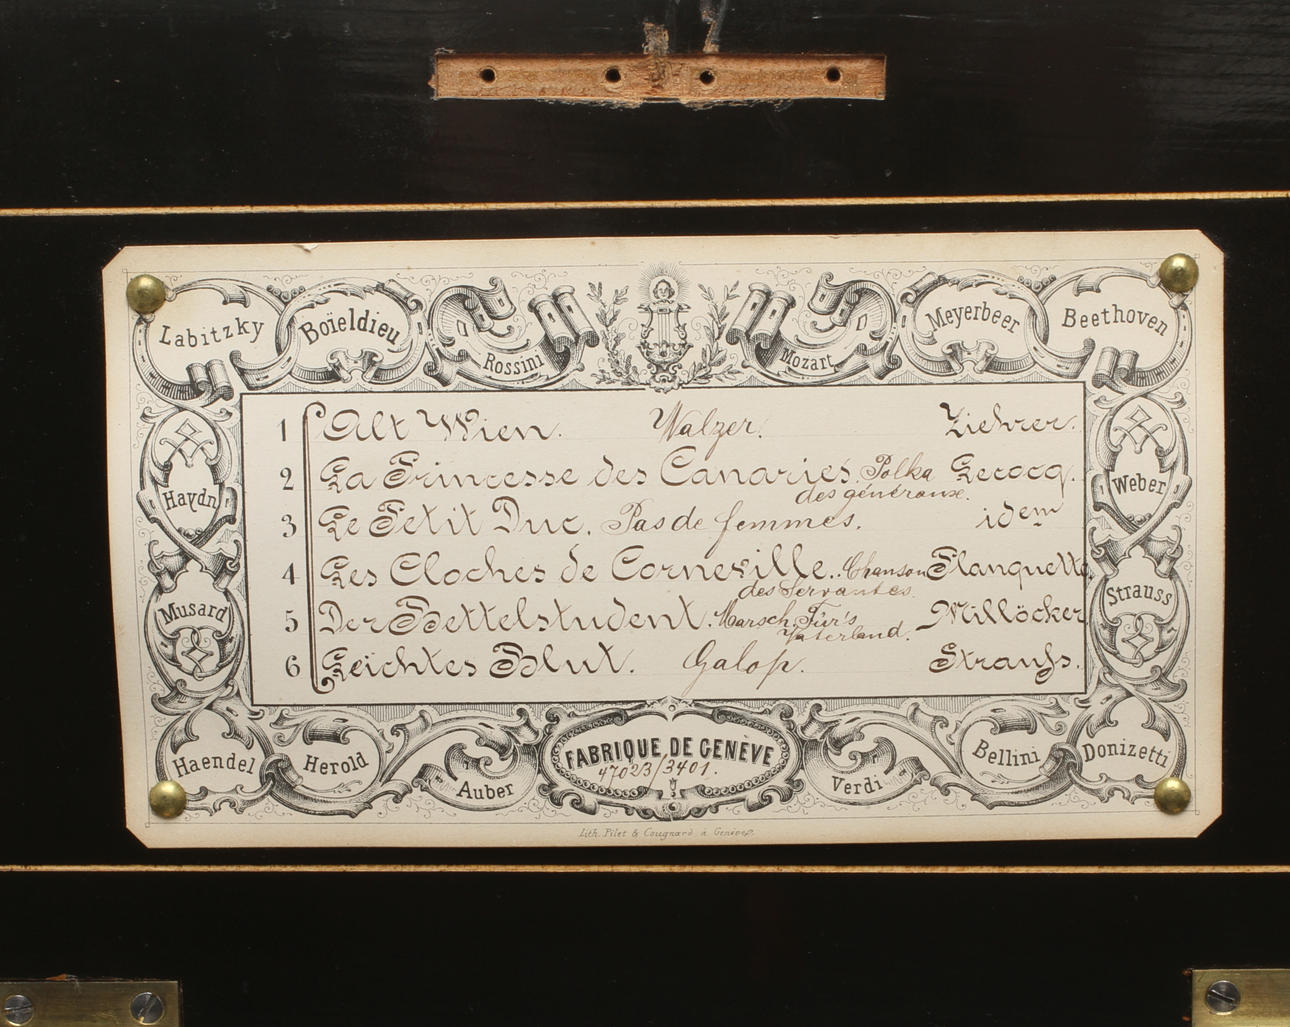 Labitzky Boïeldieu Rossini Mozart Meyerbeer Beethoven
Haydn Weber
Musard Strauss
1 Alt Wien. Walzer. Ziehrer.
2 La Princesse des Canaries. Polka Lecocq.
des généraux.
3 Le Petit Duc. Pas de femmes. idem
4 Les Cloches de Corneville. Chanson Planquette
des Servantes.
5 Der Bettelstudent. Marsch. Für's Millöcker
Vaterland.
6 Leichtes Blut. Galop. Strauss.
Haendel Herold Auber Verdi Bellini Donizetti
FABRIQUE DE GENÈVE
47023/3401.
Lith. Pilet & Cougnard à Genève.